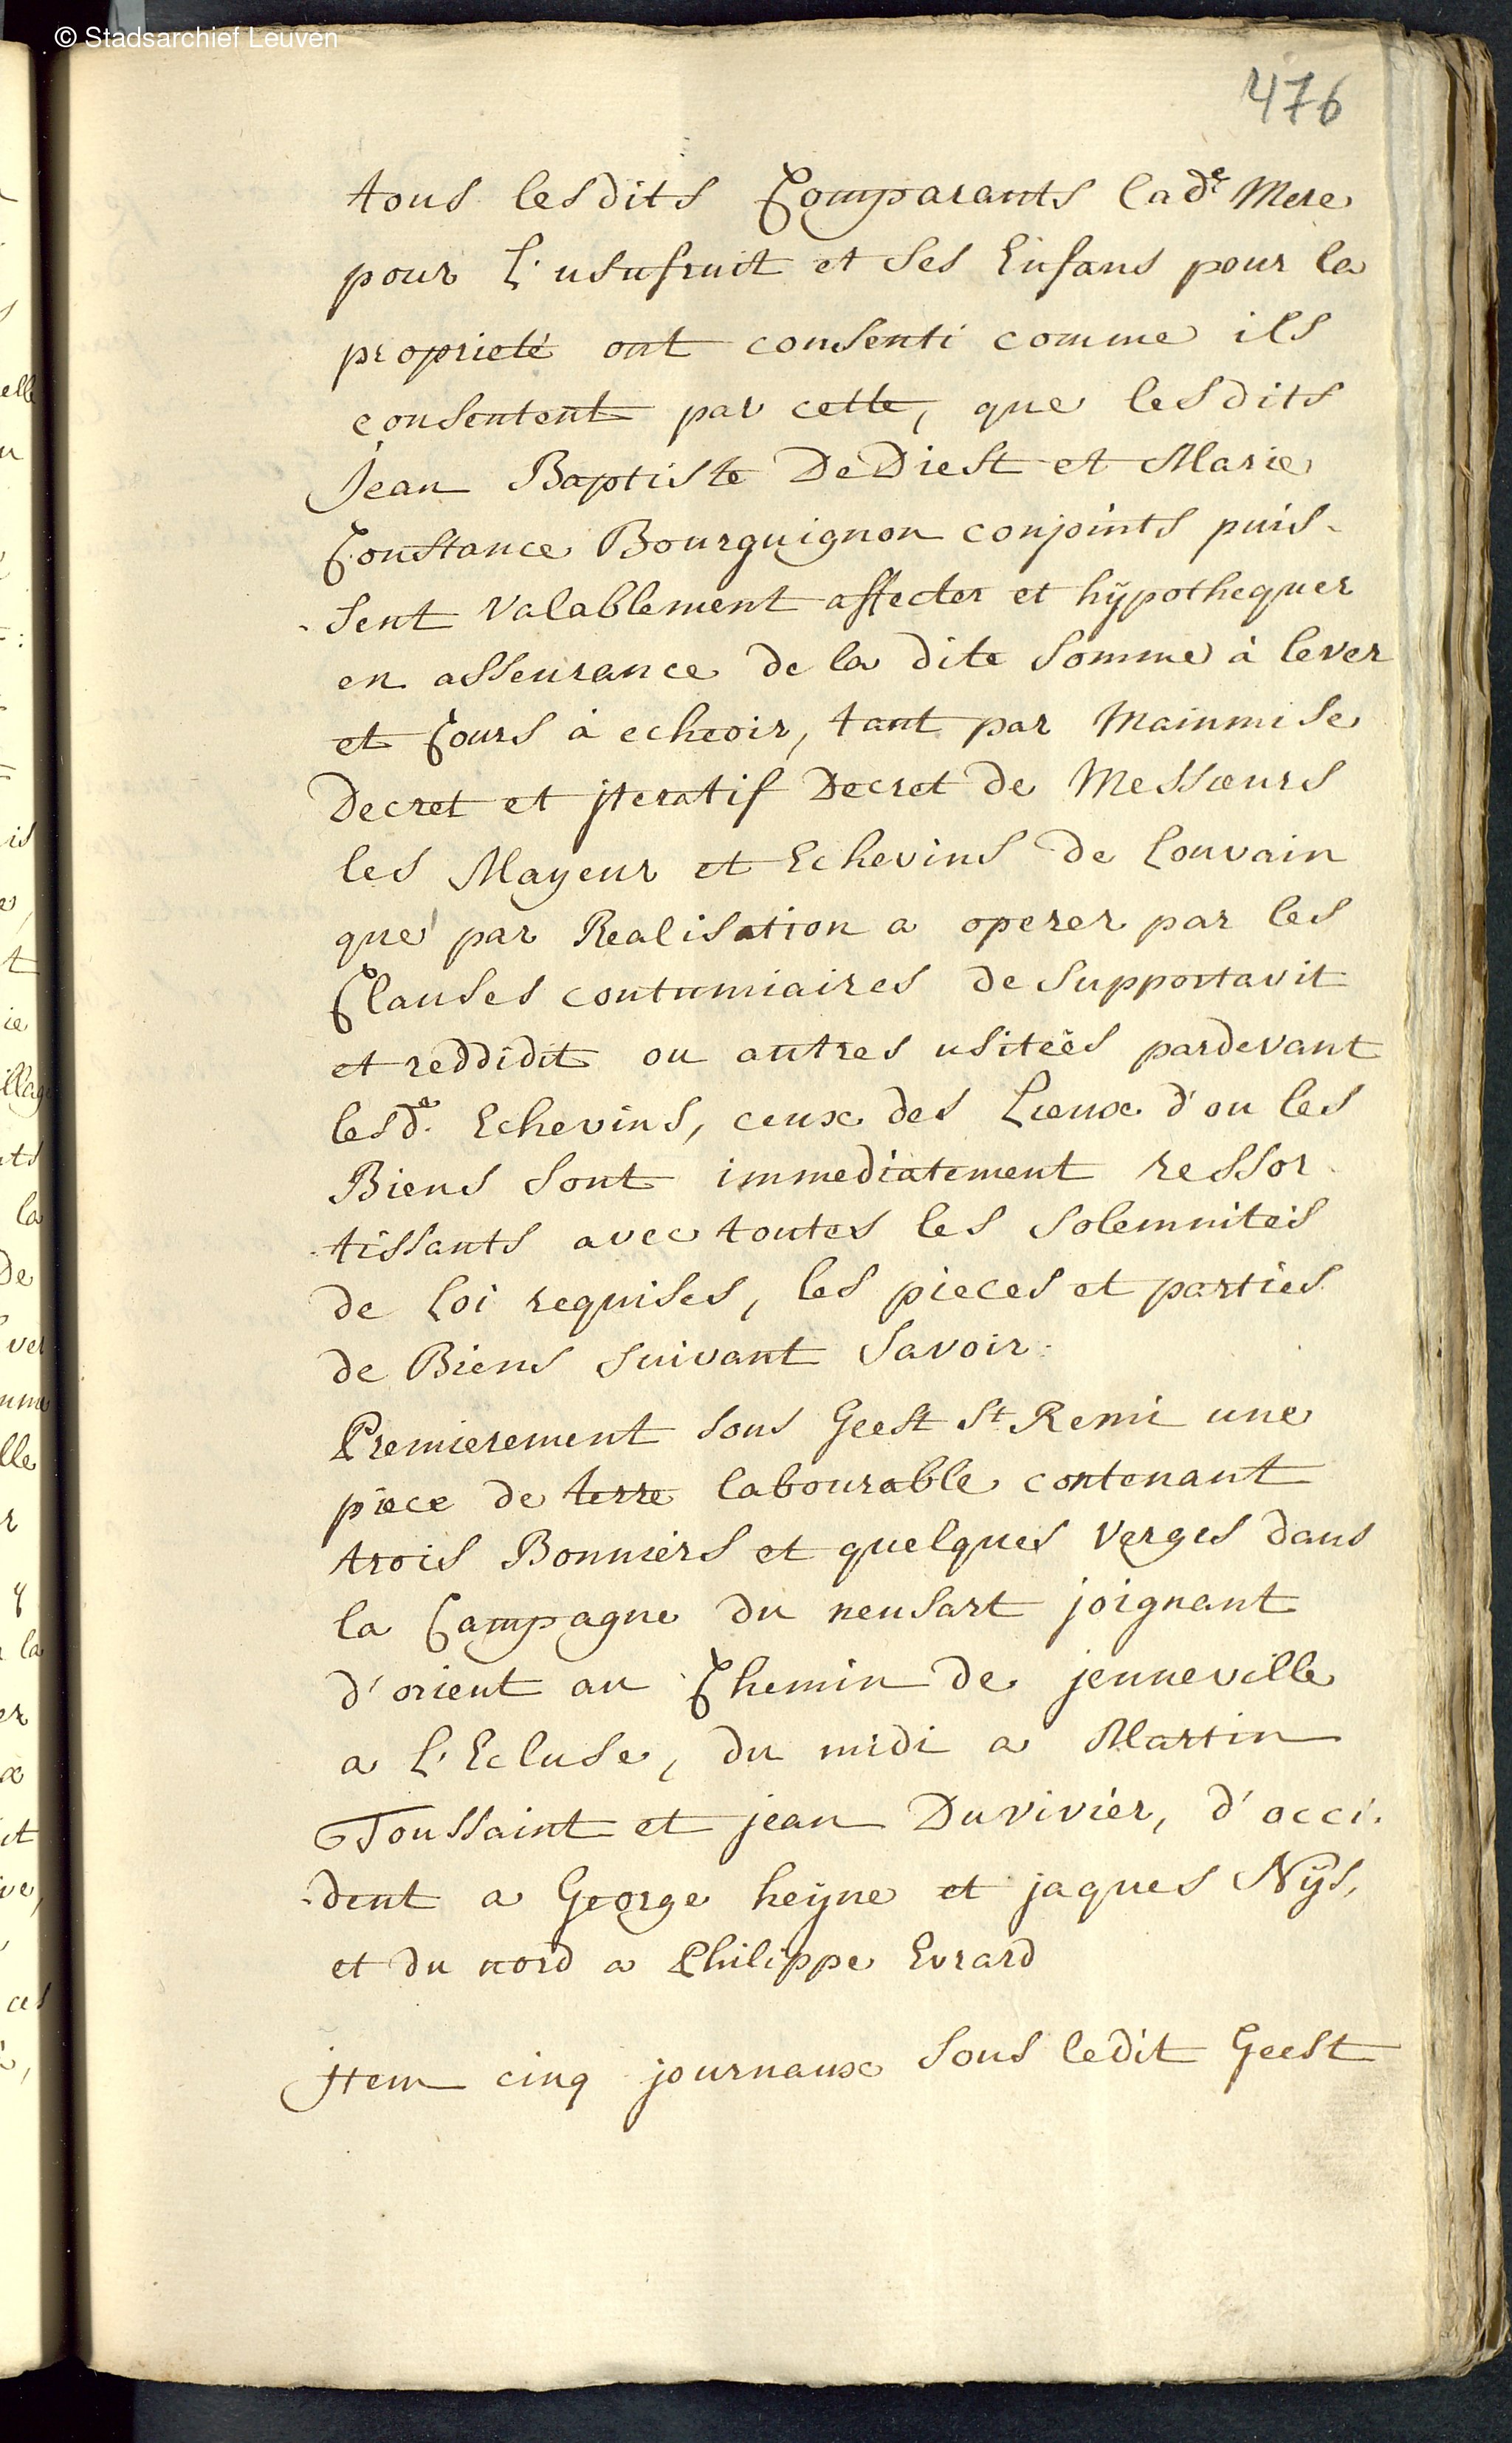 © Stadsarchief Leuven
476
tous lesdits Comparants lad.e Mere
pour l'usufruit et ses Enfans pour la
proprieté ont consenti comme ils
consentent par cette, que lesdits
Jean Baptiste De Diest et Marie
Constance Bourguignon conjoints puis-
-sent valablement affecter et hÿpothequer
en asseurance de la dite somme à lever
et Cours à echeoir, tant par Mainmise
Decret et jteratif Decret de Messieurs
les Mayeur et Echevins de Louvain
que par Realisation a operer par les
Clauses contumiaires de supportavit
et reddidit ou autres usitées pardevant
lesd.e Echevins, ceux des Lieux d'ou les
Biens sont immediatement ressor-
-tissants avec toutes les solemnités
de Loi requises, les pieces et parties
de Biens suivant savoir:
Premierement sous Geest St Remi une
piece de terre labourable contenant
trois Bonniers et quelques verges dans
la Campagne du neusart joignant
d'orient au Chemin de jenneville
a l'Ecluse, du midi a Martin
Toussaint et jean Duvivier, d'occi-
-dent a George heÿne et jaques Nÿs,
et du nord a Philippe Evrard
jtem cinq journaux sous ledit Geest